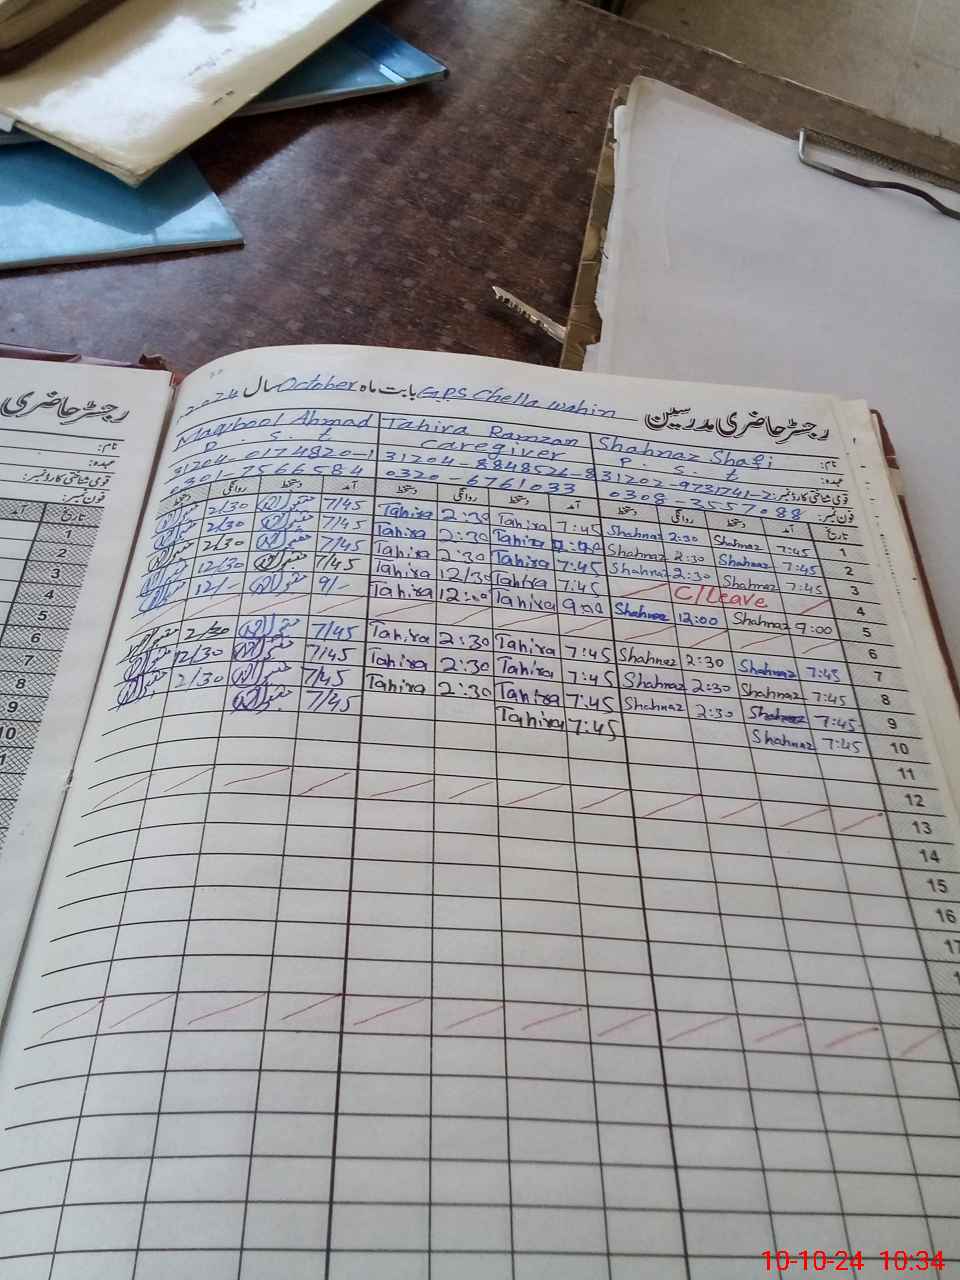 رجسٹر حاضری
نام:
عہدہ:
قومی شناختی کارڈ نمبر:
فون نمبر:
رجسٹر حاضری مدرسین G.P.S Chella wahin بابت ماہ October سال 2024
نام: Shahnaz Shafi Tahira Ramzan Maqbool Ahmad
عہدہ: P. S. t Caregiver P. S. t
قومی شناختی کارڈ نمبر: 31202-9731741-2 31204-8848526-8 31204-0174820-1
فون نمبر: 0308-3557088 0320-6761033 0301-7566584
تاریخ آمد دستخط روانگی دستخط آمد دستخط روانگی دستخط آمد دستخط روانگی دستخط
1 7:45 Shahnaz 2:30 Shahnaz 7:45 Tahira 2:30 Tahira 7/45 2/30
2 7:45 Shahnaz 2:30 Shahnaz Tahira 2:30 Tahira 7/45 2/30
3 7:45 Shahnaz 2:30 Shahnaz 7:45 Tahira 2:30 Tahira 7/45 2/30
4 C/Leave 7:45 Tahira 12/30 Tahira 7/45 12/30
5 9:00 Shahnaz 12:00 Shahnaz 9:00 Tahira 12:00 Tahira 9/- 12/-
6
7 7:45 Shahnaz 2:30 Shahnaz 7:45 Tahira 2:30 Tahira 7/45 2/30
8 7:45 Shahnaz 2:30 Shahnaz 7:45 Tahira 2:30 Tahira 7/45 12/30
9 7:45 Shahnaz 2:30 Shahnaz 7:45 Tahira 2:30 Tahira 7/45 2/30
10 7:45 Shahnaz 7:45 Tahira 7/45
11
12
13
14
15
16
17
10-10-24 10:34